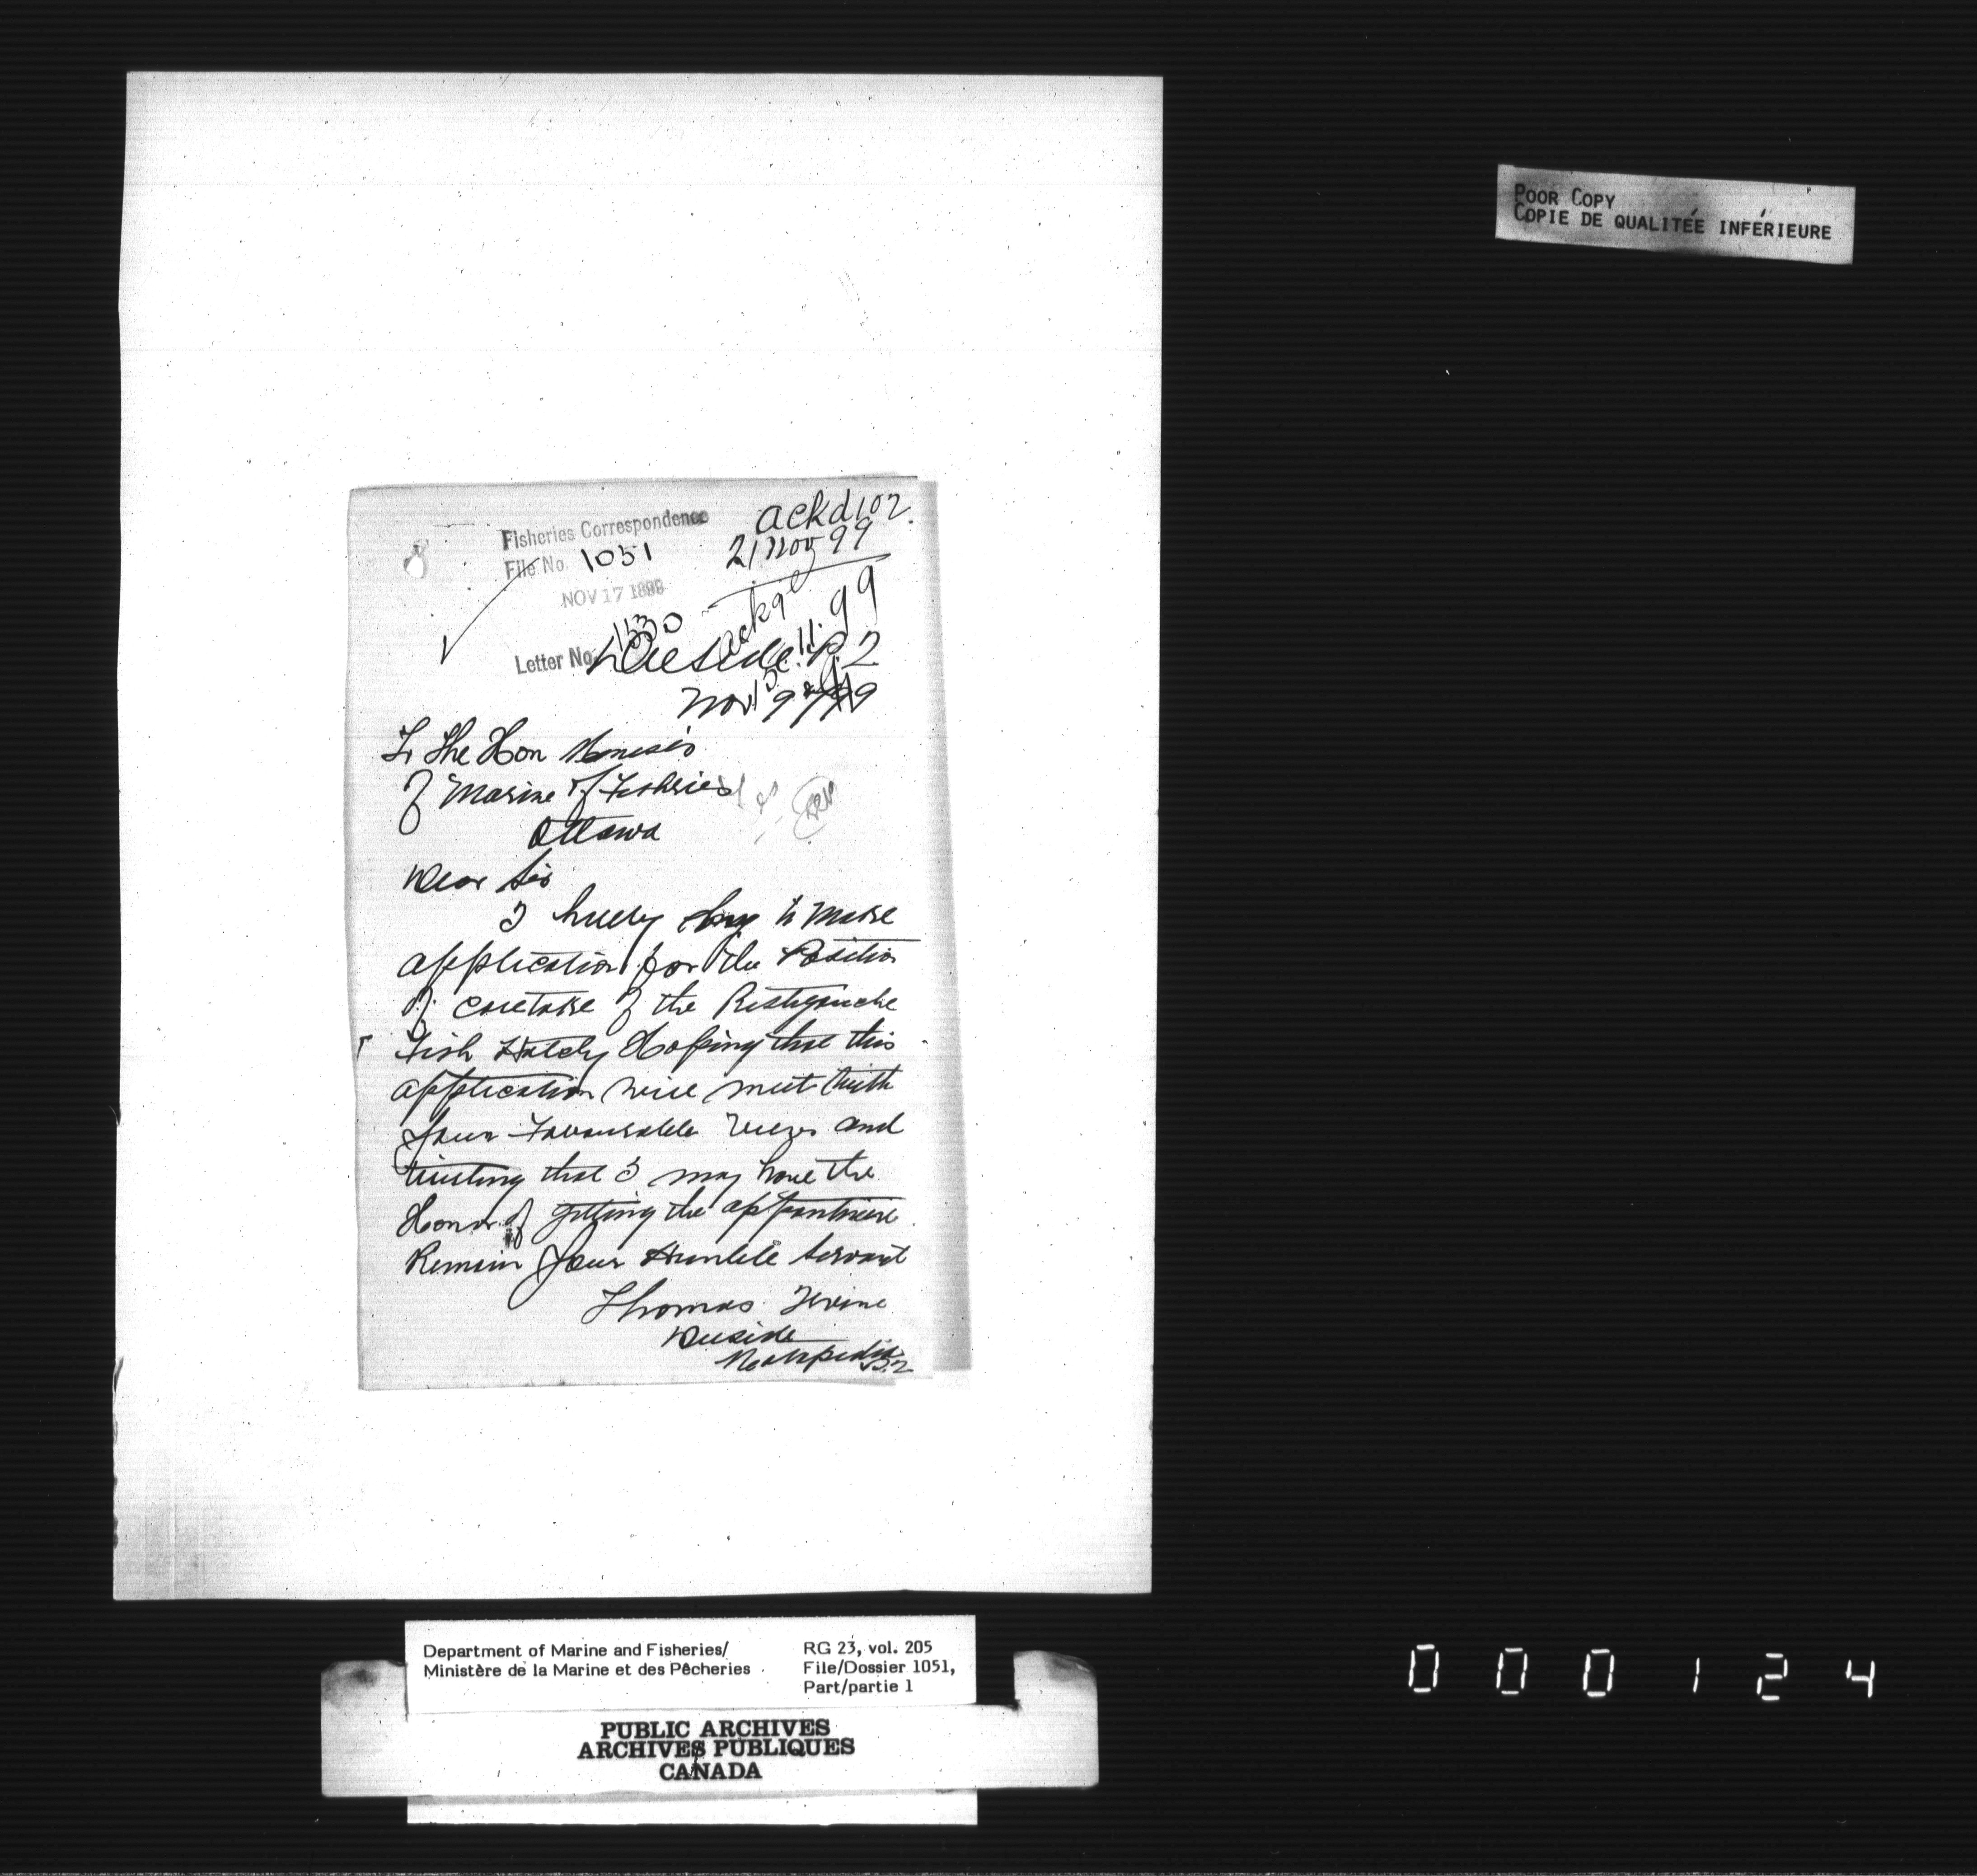 POOR COPY
COPIE DE QUALITÉE INFÉRIEURE
Fisheries Correspondence
File No. 1051
NOV 17 1899
Letter No. 1330
ackd
21 Nov 99
Deeside P.2
Nov 9 99
To The Hon
of Marine & Fisheries
Ottawa
Dear Sir
I to make
application for the Position
of caretake of the Restigouche
Fish Hatchy Hoping that this
application will meet with
your Favourable and
trusting that I may have the
Honor of getting the
Remain your Humble Servant
Thomas Irvine
Deeside
Matapedia P.2
Department of Marine and Fisheries/
Ministère de la Marine et des Pêcheries
RG 23, vol. 205
File/Dossier 1051,
Part/partie 1
PUBLIC ARCHIVES
ARCHIVES PUBLIQUES
CANADA
000124